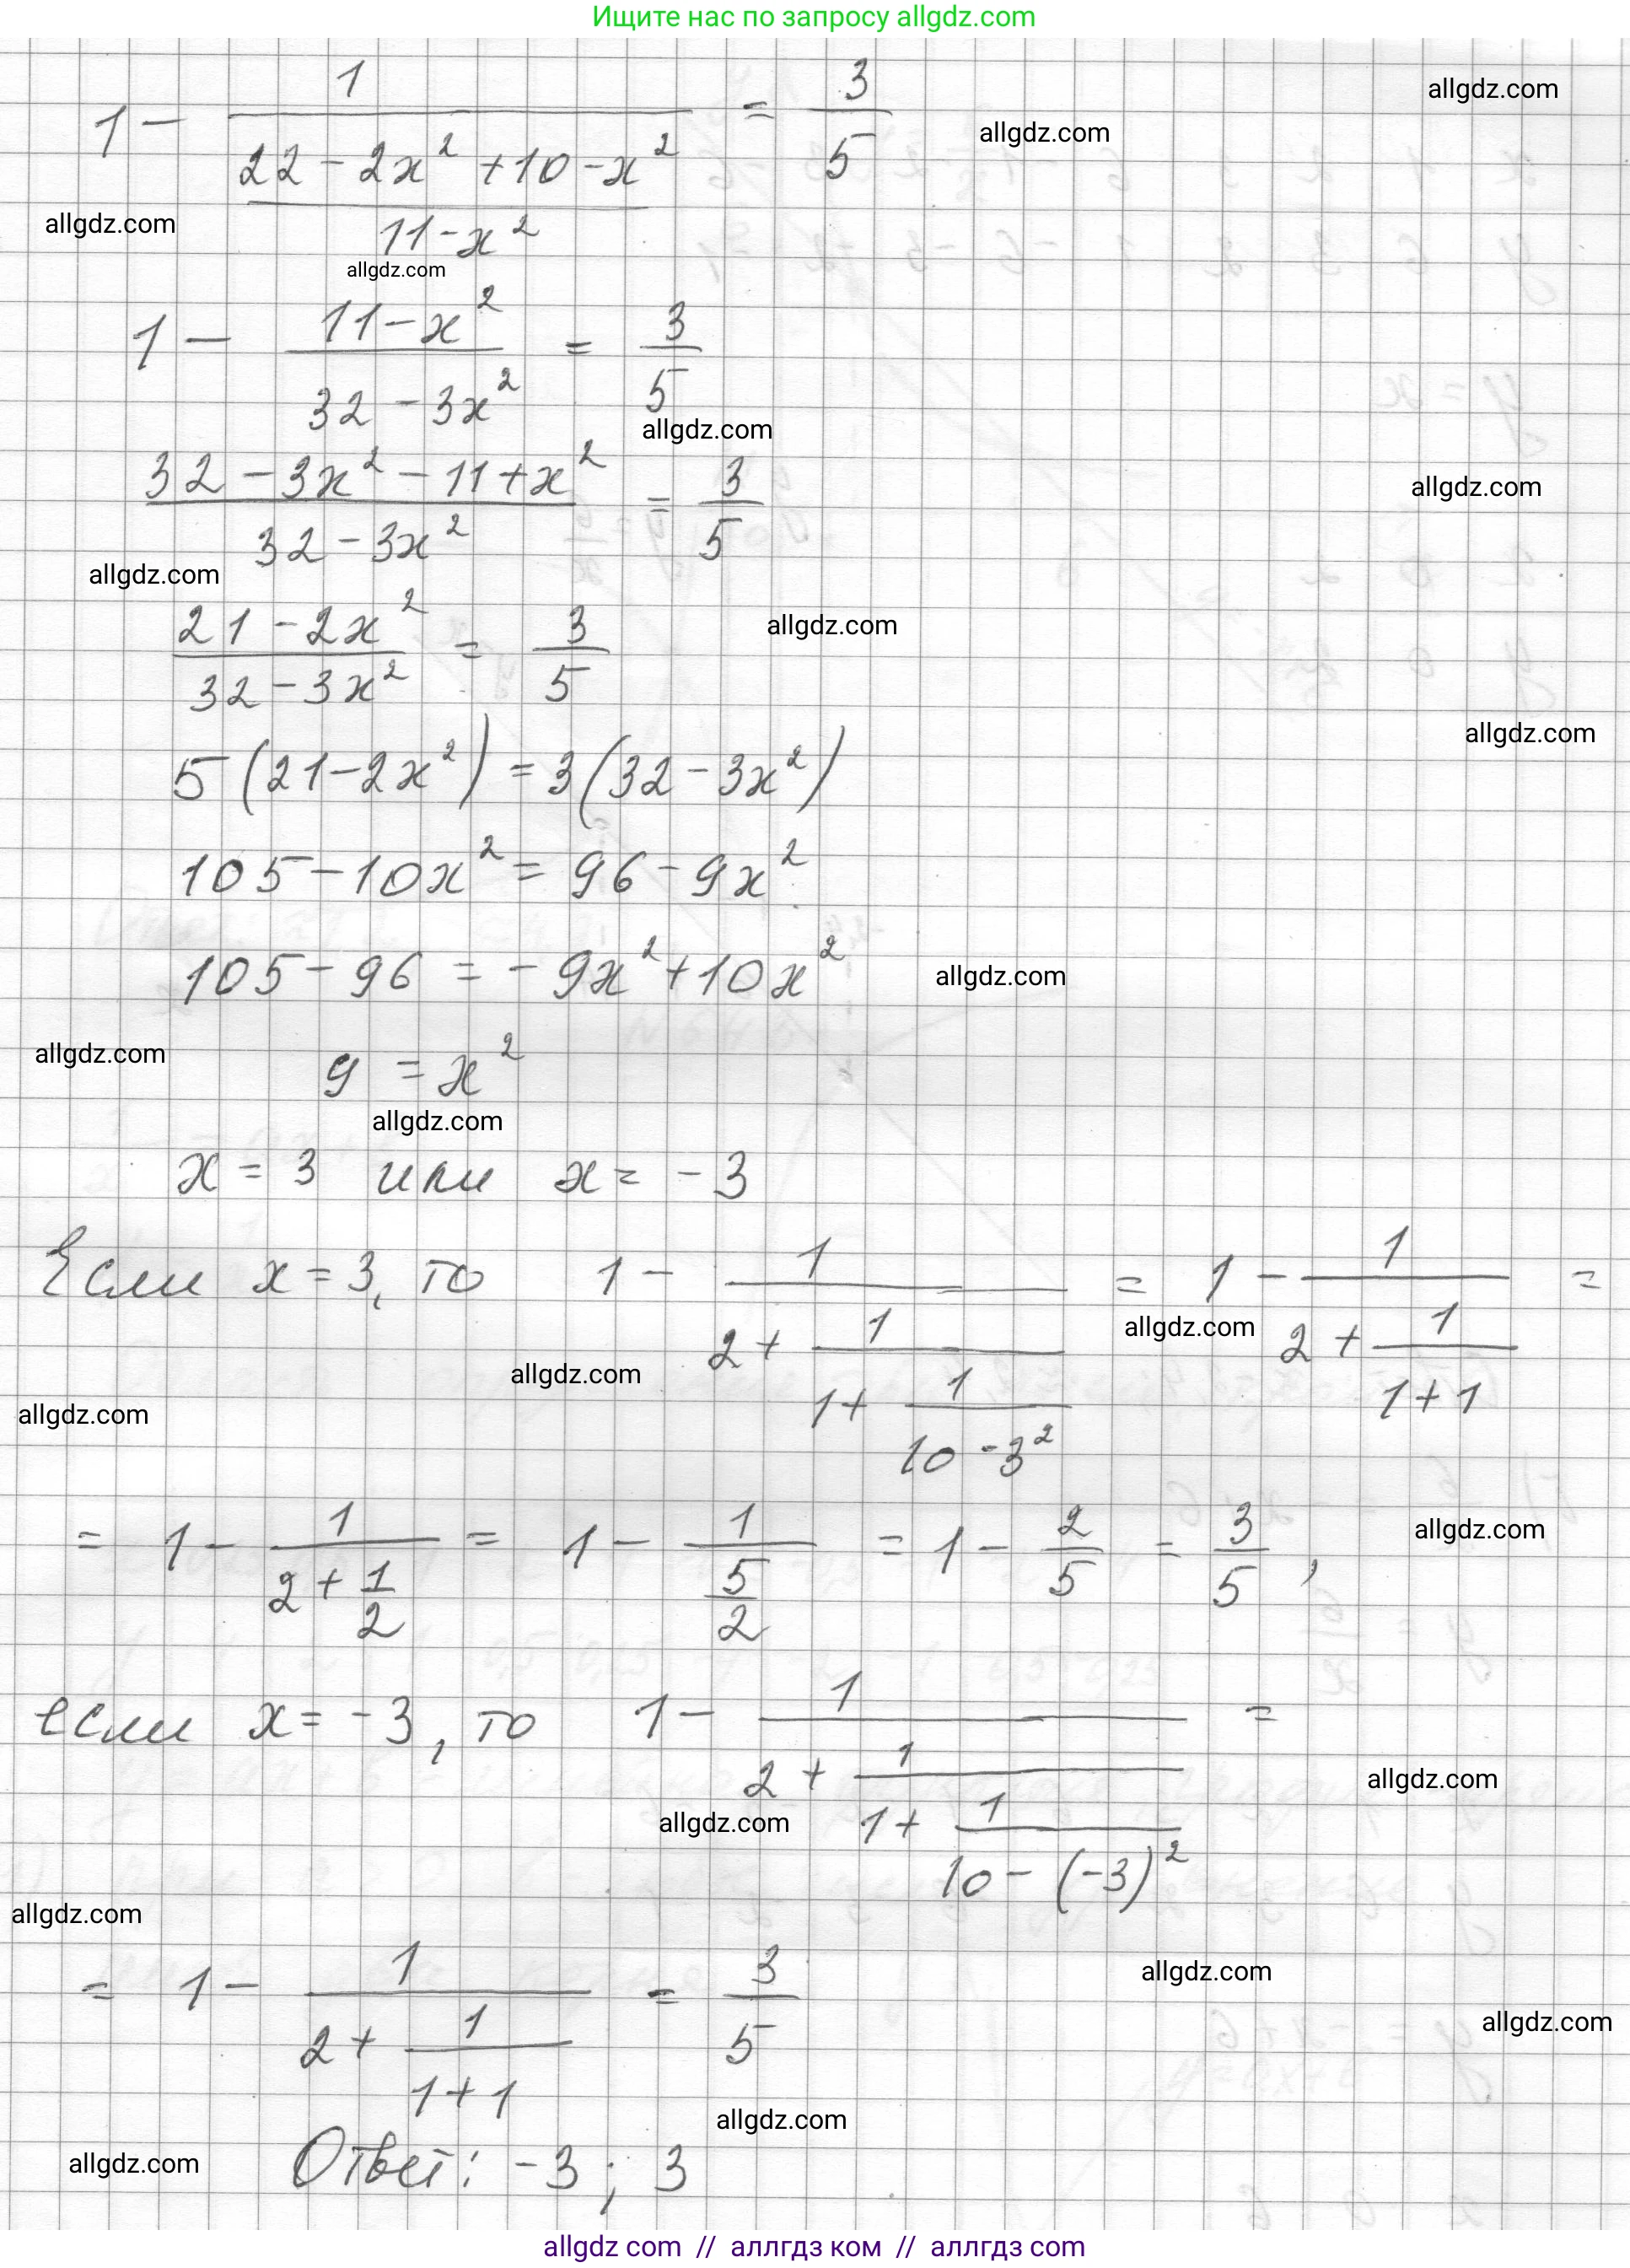 Ищите нас по запросу allgdz.com
allgdz.com
1 - 1/((22 - 2x² + 10 - x²)/(11 - x²)) = 3/5
allgdz.com
allgdz.com
allgdz.com
1 - (11 - x²)/(32 - 3x²) = 3/5
allgdz.com
(32 - 3x² - 11 + x²)/(32 - 3x²) = 3/5
allgdz.com
allgdz.com
(21 - 2x²)/(32 - 3x²) = 3/5
allgdz.com
allgdz.com
5(21 - 2x²) = 3(32 - 3x²)
105 - 10x² = 96 - 9x²
105 - 96 = -9x² + 10x²
allgdz.com
allgdz.com
9 = x²
allgdz.com
x = 3 или x = -3
Если x = 3, то 1 - 1/(2 + 1/(1 + 1/(10 - 3²))) = 1 - 1/(2 + 1/(1 + 1)) =
allgdz.com
allgdz.com
allgdz.com
= 1 - 1/(2 + 1/2) = 1 - 1/(5/2) = 1 - 2/5 = 3/5,
allgdz.com
если x = -3, то 1 - 1/(2 + 1/(1 + 1/(10 - (-3)²))) =
allgdz.com
allgdz.com
allgdz.com
= 1 - 1/(2 + 1/(1 + 1)) = 3/5
allgdz.com
allgdz.com
allgdz.com
Ответ: -3; 3
allgdz.com
allgdz com // аллгдз ком // аллгдз com